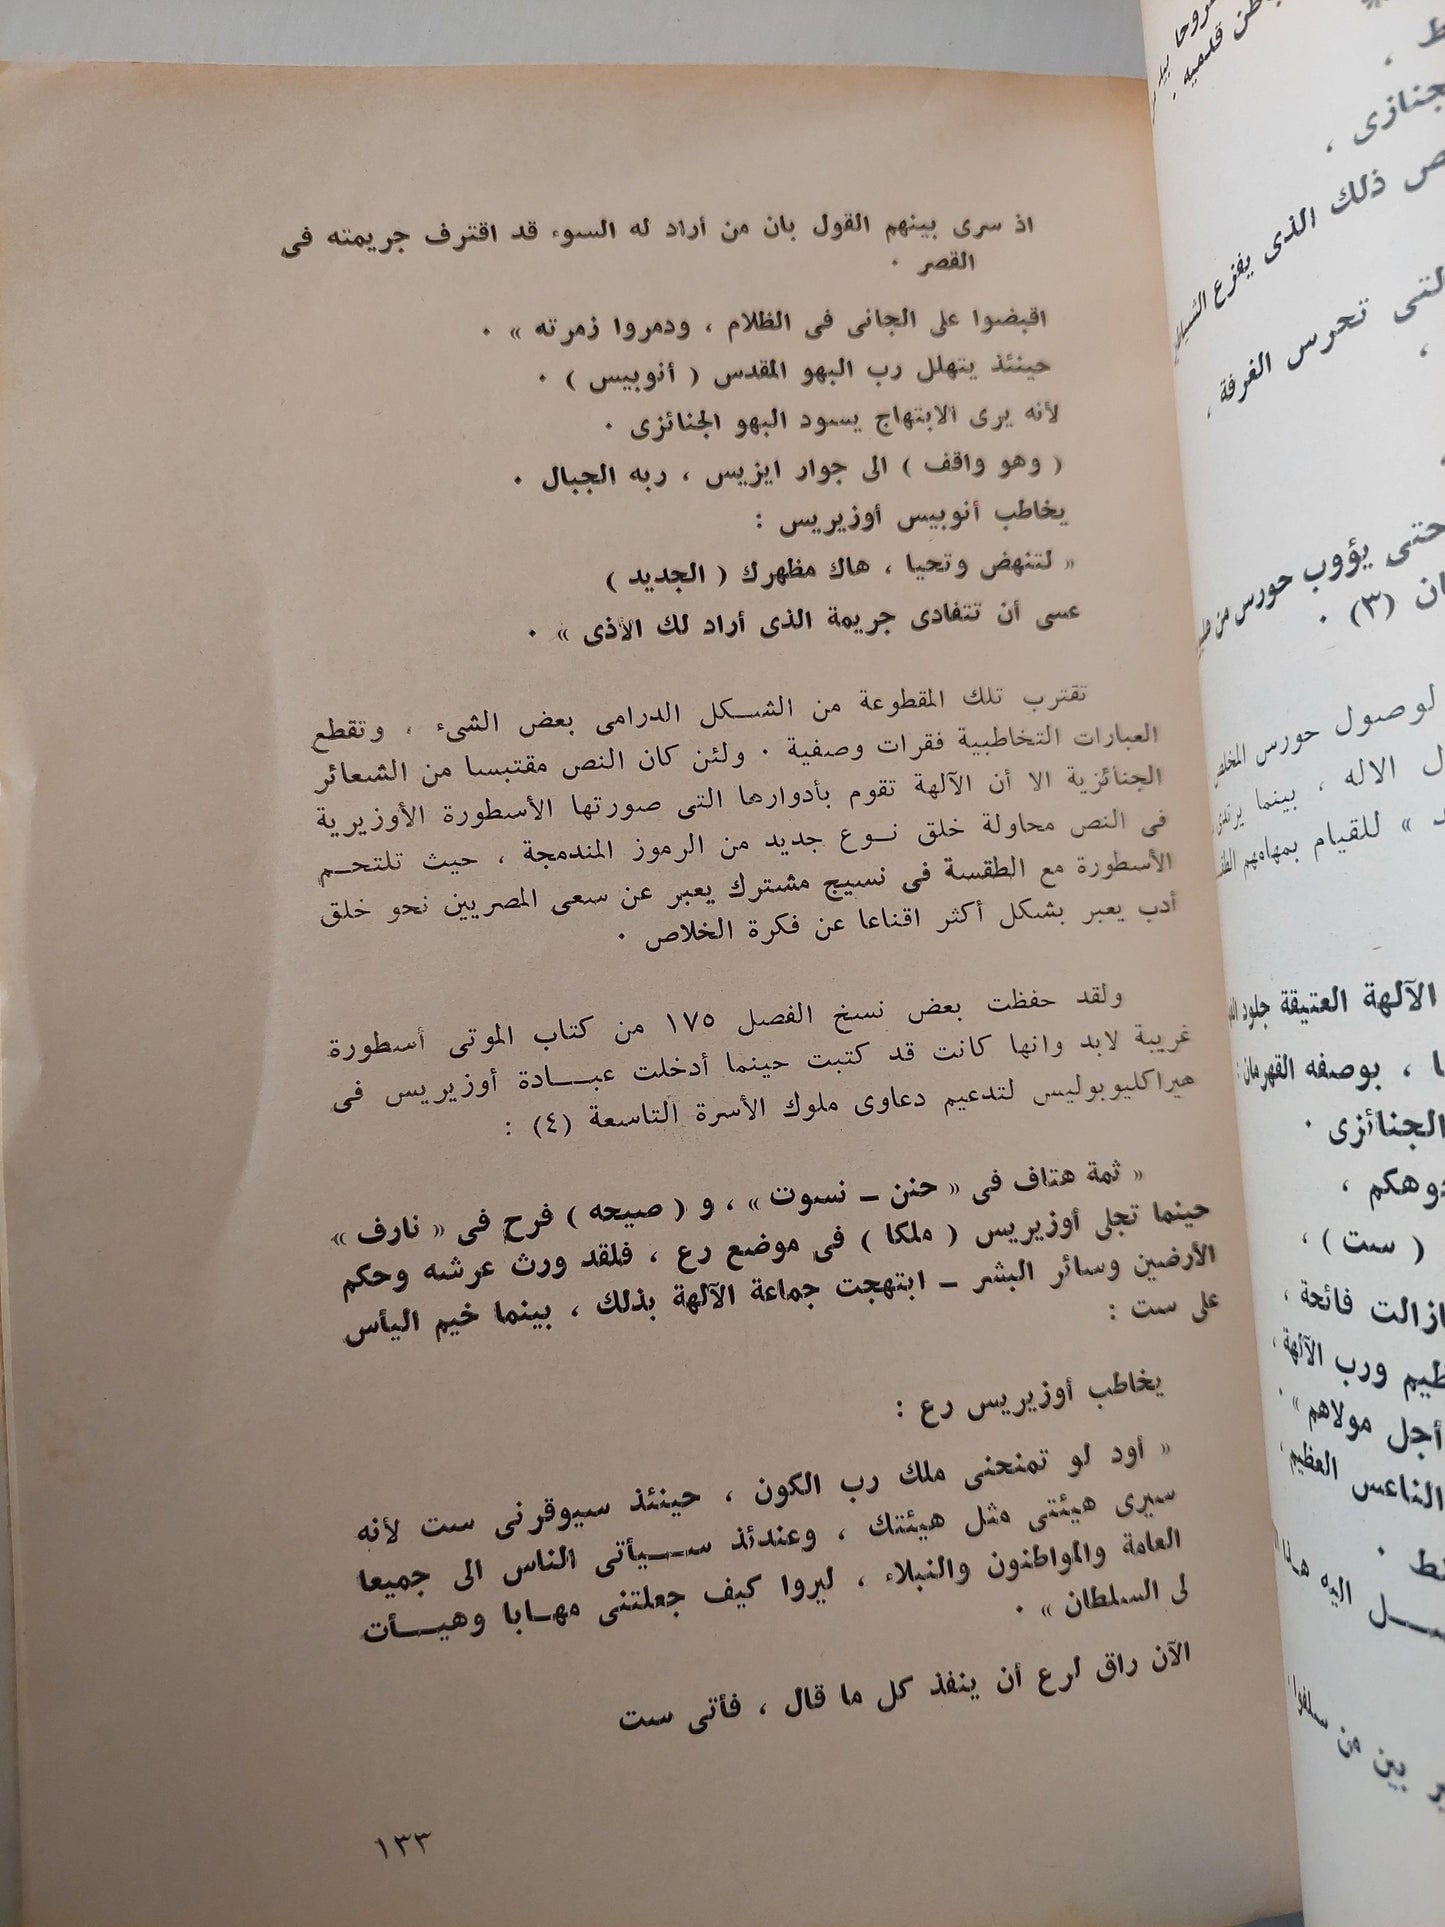 اذ سرى بينهم القول بان من أراد له السوء قد اقترف جريمته فى
القصر ٠
اقبضوا على الجانى فى الظلام ، ودمروا زمرته » ٠
حينئذ يتهلل رب البهو المقدس ( أنوبيس ) ٠
لأنه يرى الابتهاج يسود البهو الجنائزى ٠
( وهو واقف ) الى جوار ايزيس ، ربه الجبال ٠
يخاطب أنوبيس أوزيريس :
« لتنهض وتحيا ، هاك مظهرك ( الجديد )
عسى أن تتفادى جريمة الذى أراد لك الأذى » ٠
تقترب تلك المقطوعة من الشكل الدرامى بعض الشىء ، وتقطع
العبارات التخاطبية فقرات وصفية ٠ ولئن كان النص مقتبسا من الشعائر
الجنائزية الا أن الآلهة تقوم بأدوارها التى صورتها الأسطورة الأوزيرية
فى النص محاولة خلق نوع جديد من الرموز المندمجة ، حيث تلتحم
الأسطورة مع الطقسة فى نسيج مشترك يعبر عن سعى المصريين نحو خلق
أدب يعبر بشكل أكثر اقناعا عن فكرة الخلاص ٠
ولقد حفظت بعض نسخ الفصل ١٧٥ من كتاب الموتى أسطورة
غريبة لابد وانها كانت قد كتبت حينما أدخلت عبادة أوزيريس فى
هيراكليوبوليس لتدعيم دعاوى ملوك الأسرة التاسعة (٤) :
« ثمة هتاف فى « حنن – نسوت » ، و ( صيحه ) فرح فى « نارف »
حينما تجلى أوزيريس ( ملكا ) فى موضع رع ، فلقد ورث عرشه وحكم
الأرضين وسائر البشر – ابتهجت جماعة الآلهة بذلك ، بينما خيم اليأس
على ست :
يخاطب أوزيريس رع :
« أود لو تمنحنى ملك رب الكون ، حينئذ سيوقرنى ست لأنه
سيرى هيئتى مثل هيئتك ، وعندئذ سيأتى الناس الى جميعا
العامة والمواطنون والنبلاء ، ليروا كيف جعلتنى مهابا وهيأت
لى السلطان » ٠
الآن راق لرع أن ينفذ كل ما قال ، فأتى ست
١٣٣
قدميه ٠
ص ذلك الذى يفزع
التى تحرس الغرفة ،
حتى يؤوب حورس من
(٣) ٠
لوصول حورس المخلص
الاله ، بينما يرتدى
» للقيام بمهامهم
الآلهة العتيقة جلود
، بوصفه القهرمان :
الجنائزى ٠
( ست ) ،
مازالت فائحة ،
ورب الآلهة ،
أجل مولاهم » ٠
الناعس العظيم ،
اليه
بين من سلفوا